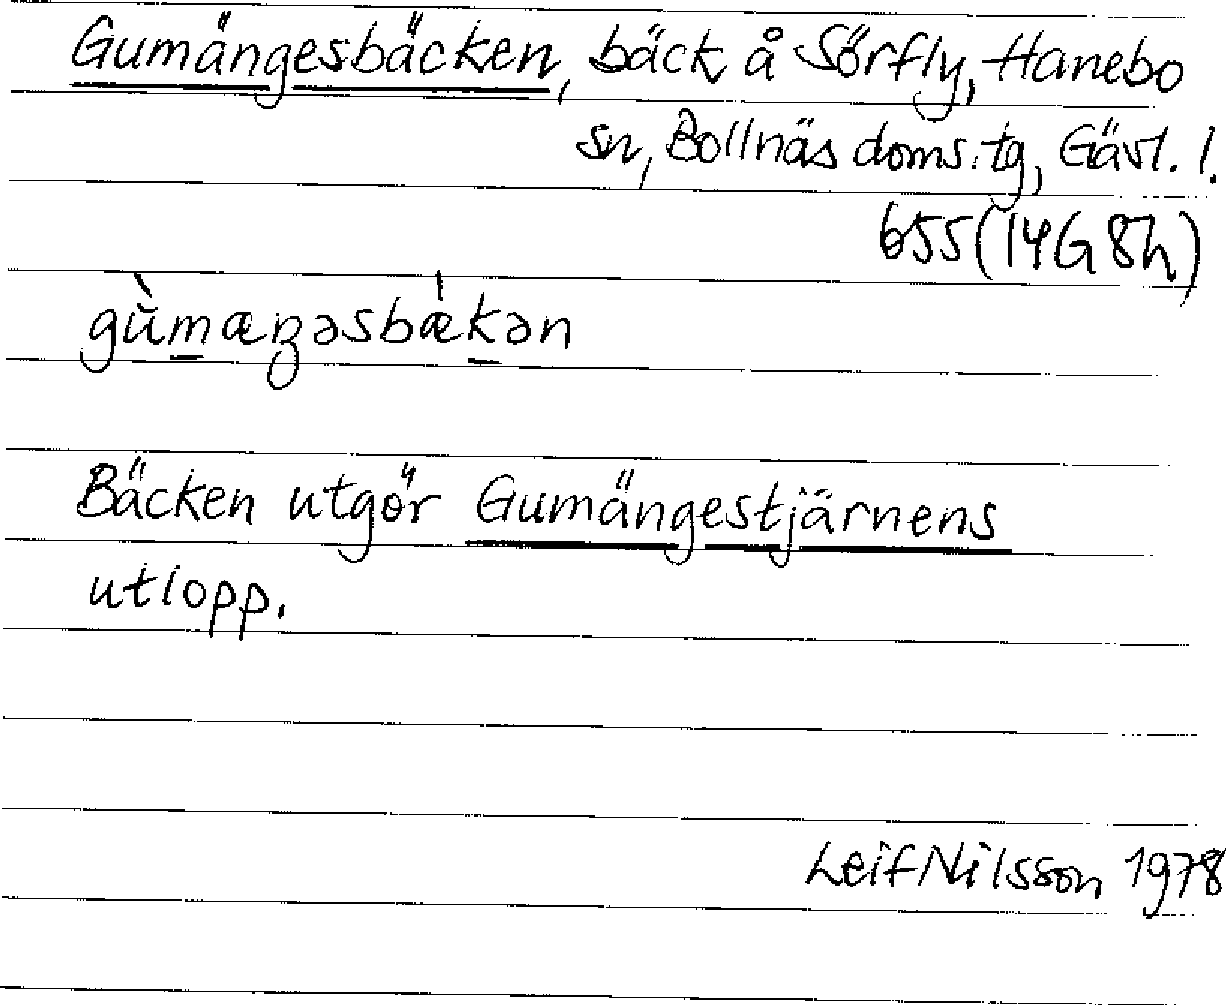 Gumängesbäcken, bäck å Sörfly, Hanebo
sn, Bollnäs doms.tg, Gävl. l.
655 (14G 8h)
gŭ̀mæŋəsbæ̀kən
Bäcken utgör Gumängestjärnens
utlopp.
Leif Nilsson 1978